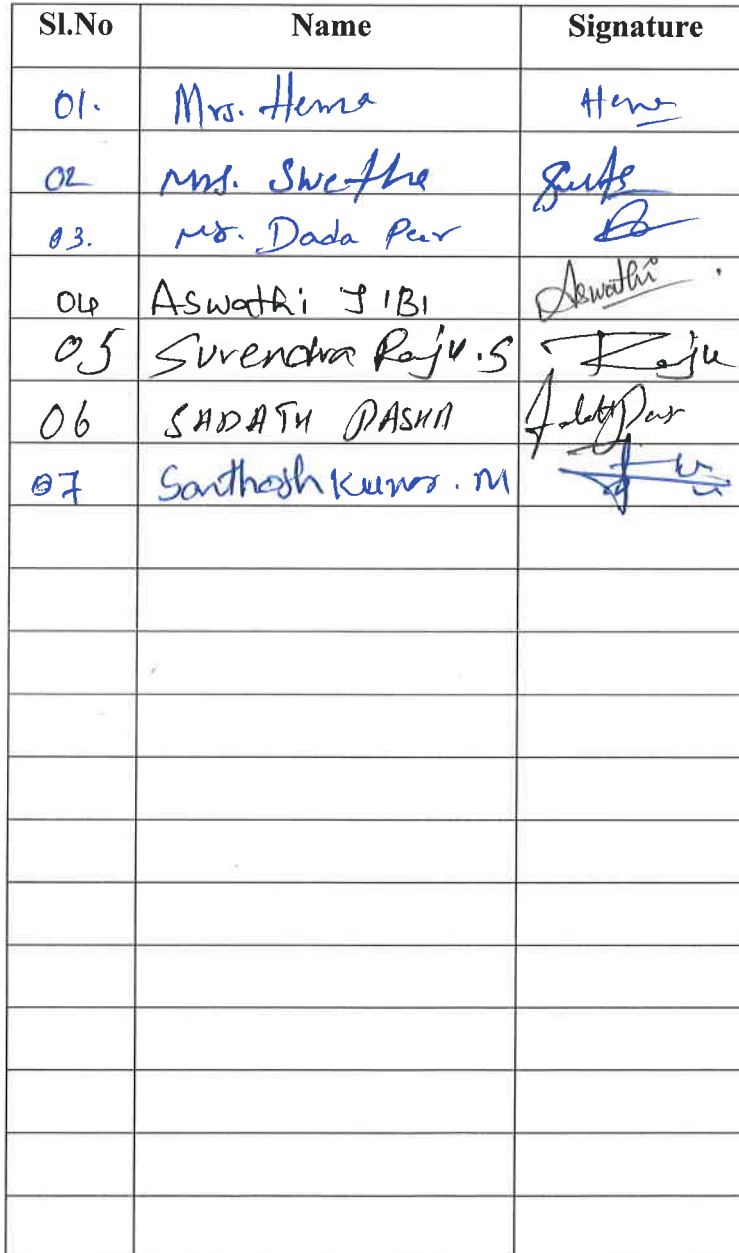 Sl.No Name Signature
01. Mrs. Hema Hema
02 Mrs. Swetha
03. Mr. Dada Peer
04 Aswathi JIBI Aswathi
05 Surendra Raju.S Raju
06 SADATH PASHA
07 Santhosh Kumar. M